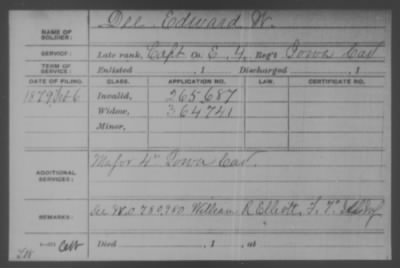 NAME OF SOLDIER: Dee Edward W.
SERVICE: Late rank, Capt Co. E, 4, Reg't Iowa Cav
TERM OF SERVICE: Enlisted , 1 Discharged , 1
DATE OF FILING. CLASS. APPLICATION NO. LAW. CERTIFICATE NO.
1879 Feb 6 Invalid, 265.687
Widow, 364741
Minor,
ADDITIONAL SERVICES: Major 4" Iowa Cav.
REMARKS: See W.O 780,980 William R Elliott,
Died , 1 , at